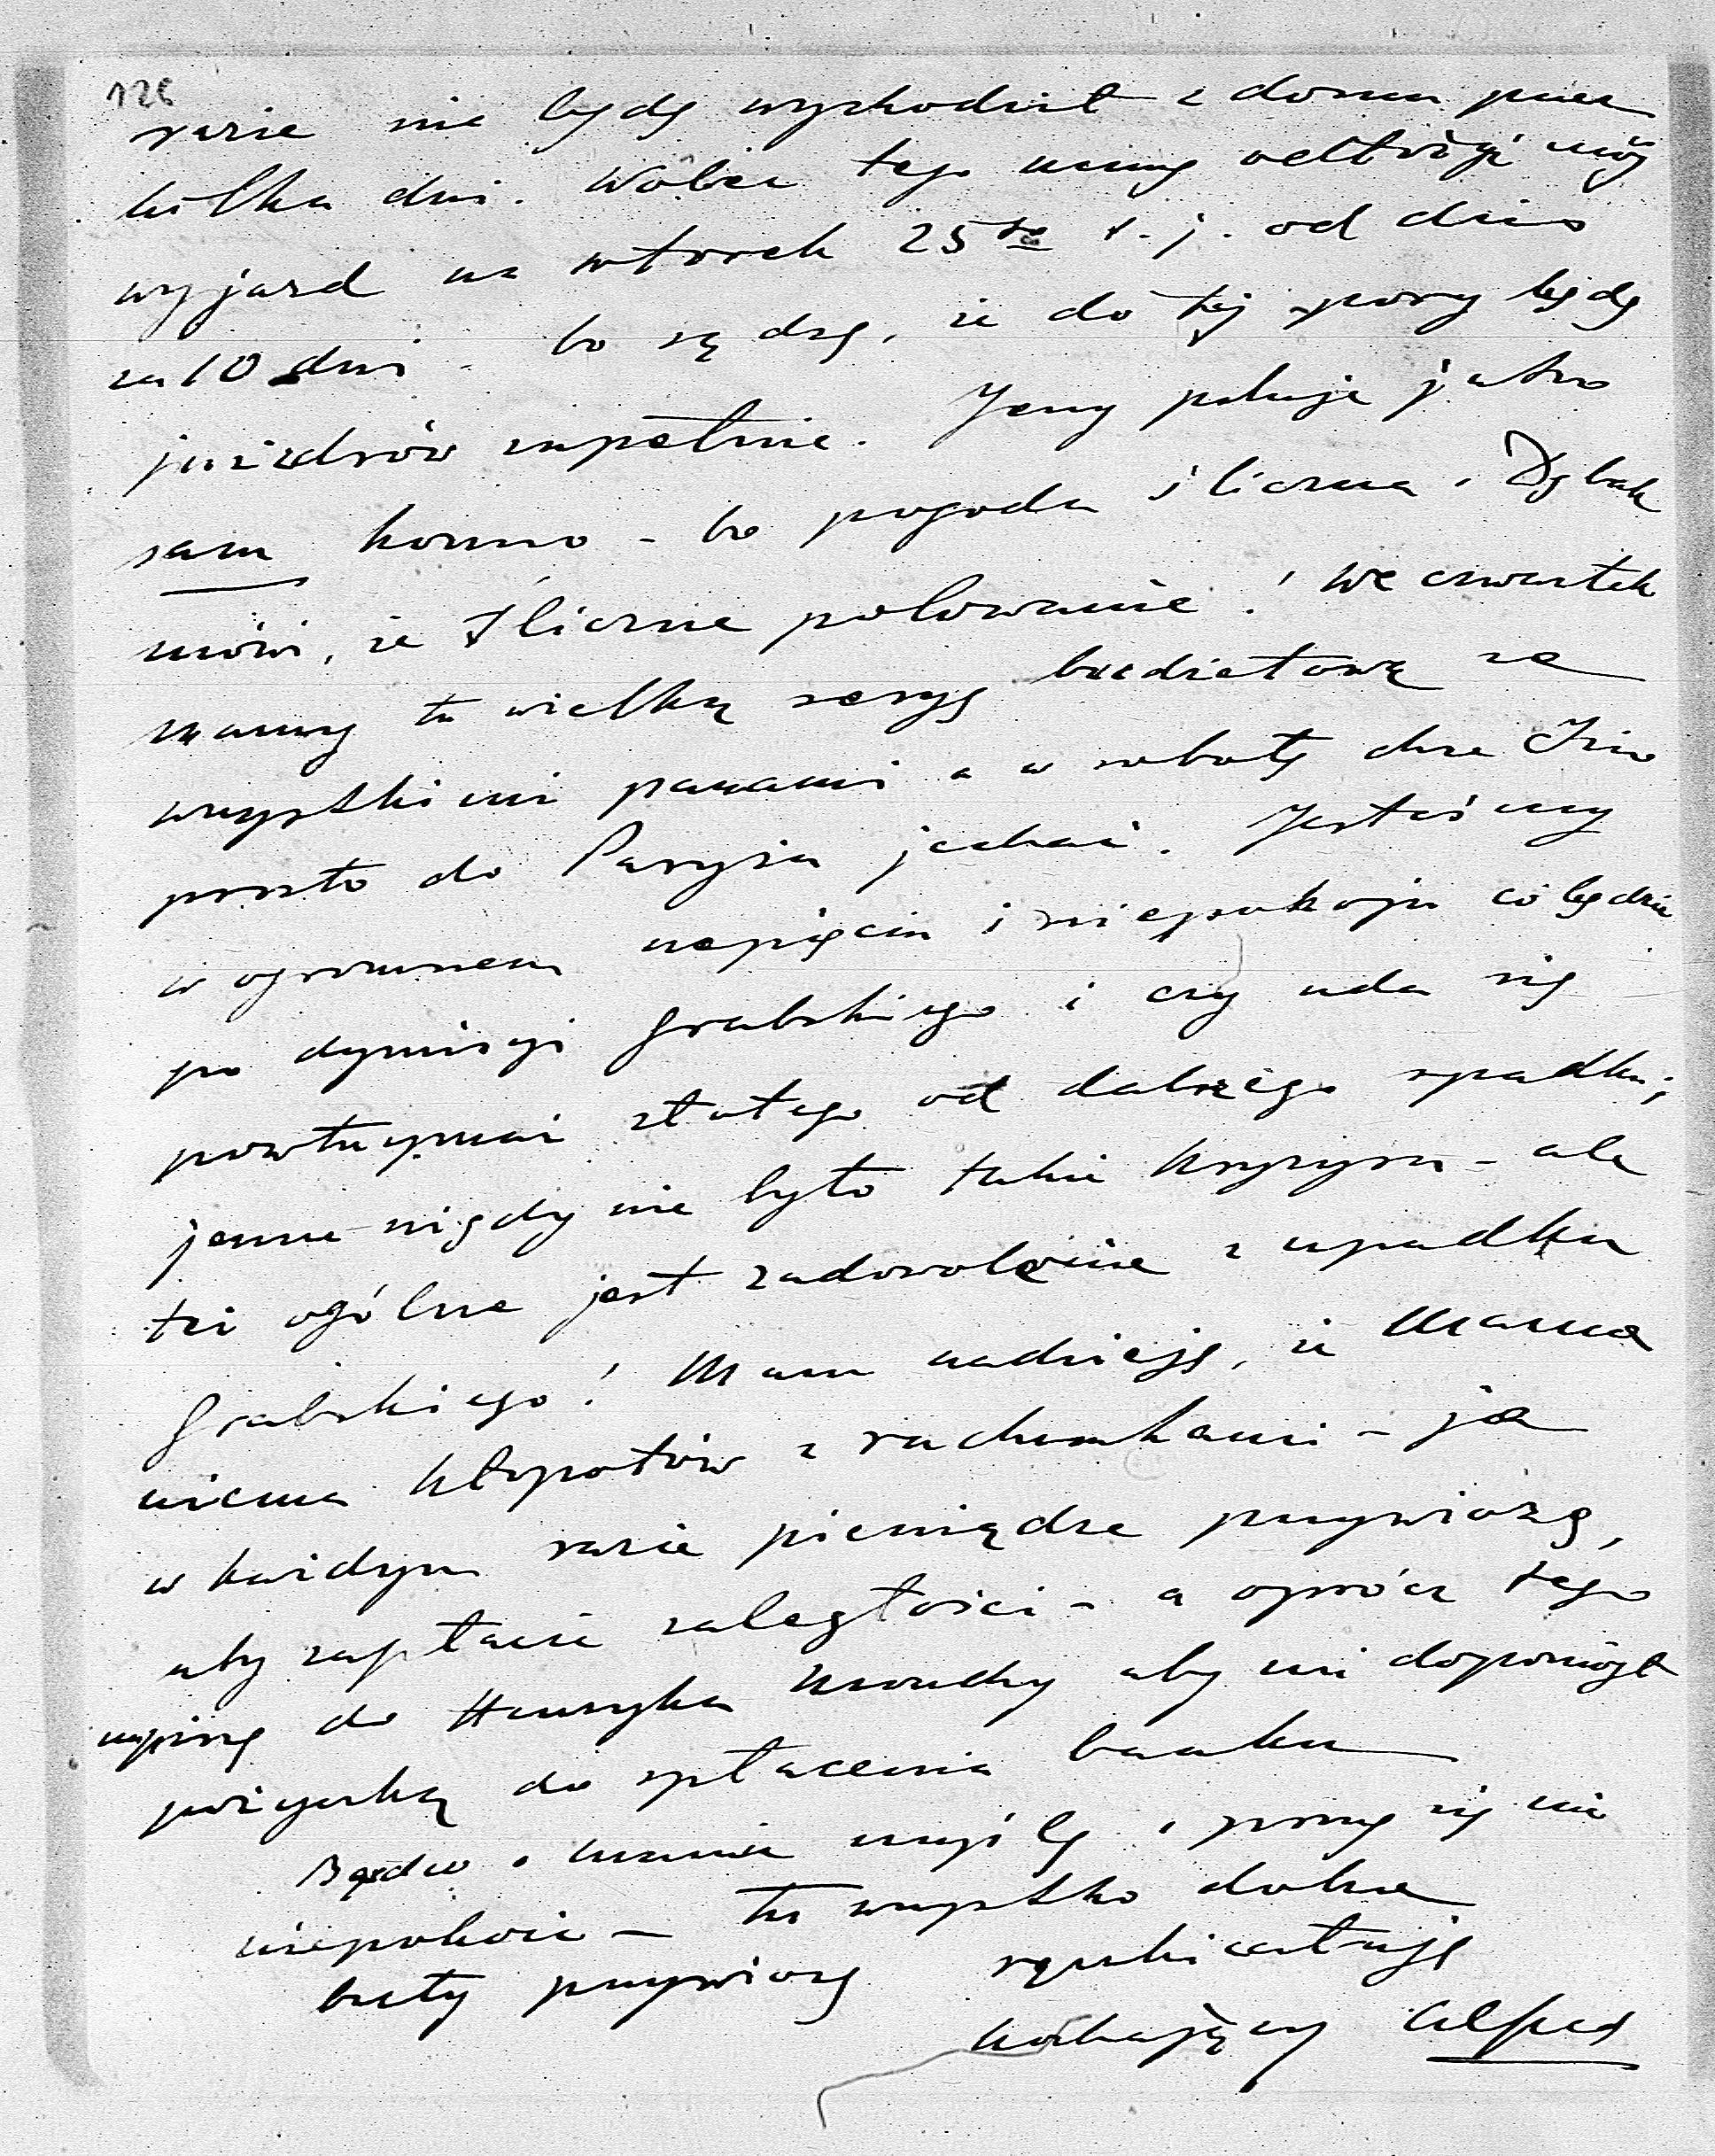 126
razie nie będę wychodził z domu przez
kilka dni. Wobec tego muszę odłożyć mój
wyjazd na wtorek 25go t.j. od dziś
za 10 dni - bo sądzę, że do tej pory będę
już zdrów zupełnie. Jerzy poluje jutro
sam konno - bo pogoda śliczna i Dębak
mówi, że śliczne polowanie! We czwartek
mamy tu wielką sesyę budżetową ze
wszystkimi panami a w sobotę chce Izio
prosto do Paryża jechać. Jesteśmy
w ogromnem napięciu i niepokoju co będzie
po dymisyi Grabskiego i czy uda się
powstrzymać złotego od dalszego spadku;
jeszcze nigdy nie było takie kryzysu - ale
też ogólne jest zadowolenie z upadku
Grabskiego! Mam nadzieję, że Mama
niema kłopotów z rachunkami - ja
w każdym razie pieniądze przywiozę,
aby zapłacić zaległości - a oprócz tego
napiszę do Henryka aby mi dopomógł
pożyczką do spłacenia banku
Bardzo o mamie myślę i proszę się nie
niepokoić - tu wszystko dobrze
buty przywiozę rączki całuję
kochający Alfred